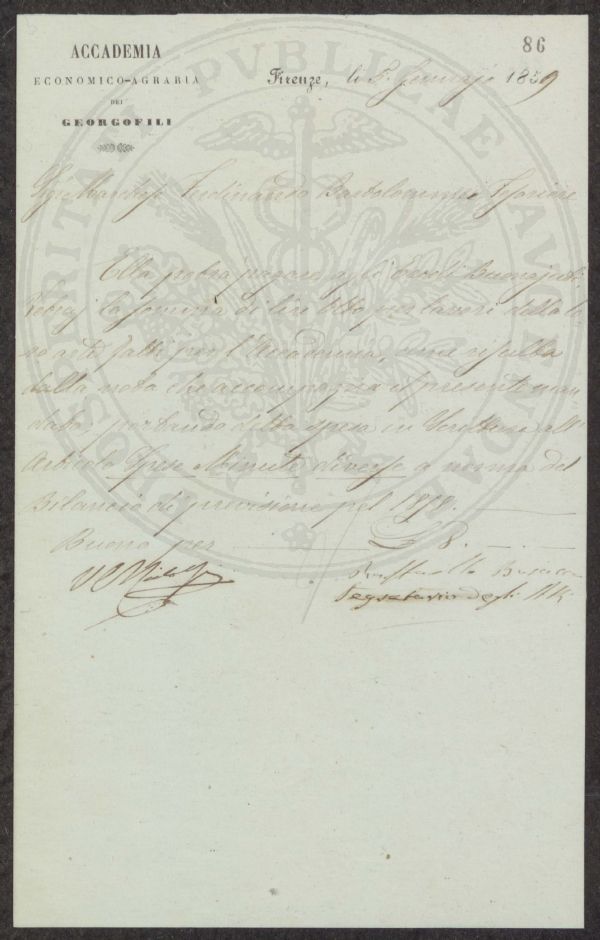 86
ACCADEMIA
ECONOMICO-AGRARIA
DEI
GEORGOFILI
Firenze, li 5. Gennajo 1859
Sigre Marchese Ferdinando Bartolommei Tesoriere
Ella potrà pagare agli Eredi Buonajuti
la somma di lire Otto per lavori della lo
ro arte fatti per l'Accademia, come risulta
dalla nota che accompagna il presente man
dato, portando detta spesa in all'
Articolo Spese Minute diverse a norma del
Bilancio di previsione pel
Buono per £ 8.
Raffaello Busacca
Segretario degli Atti
PROSPERITATI PVBLICAE AVGENDAE